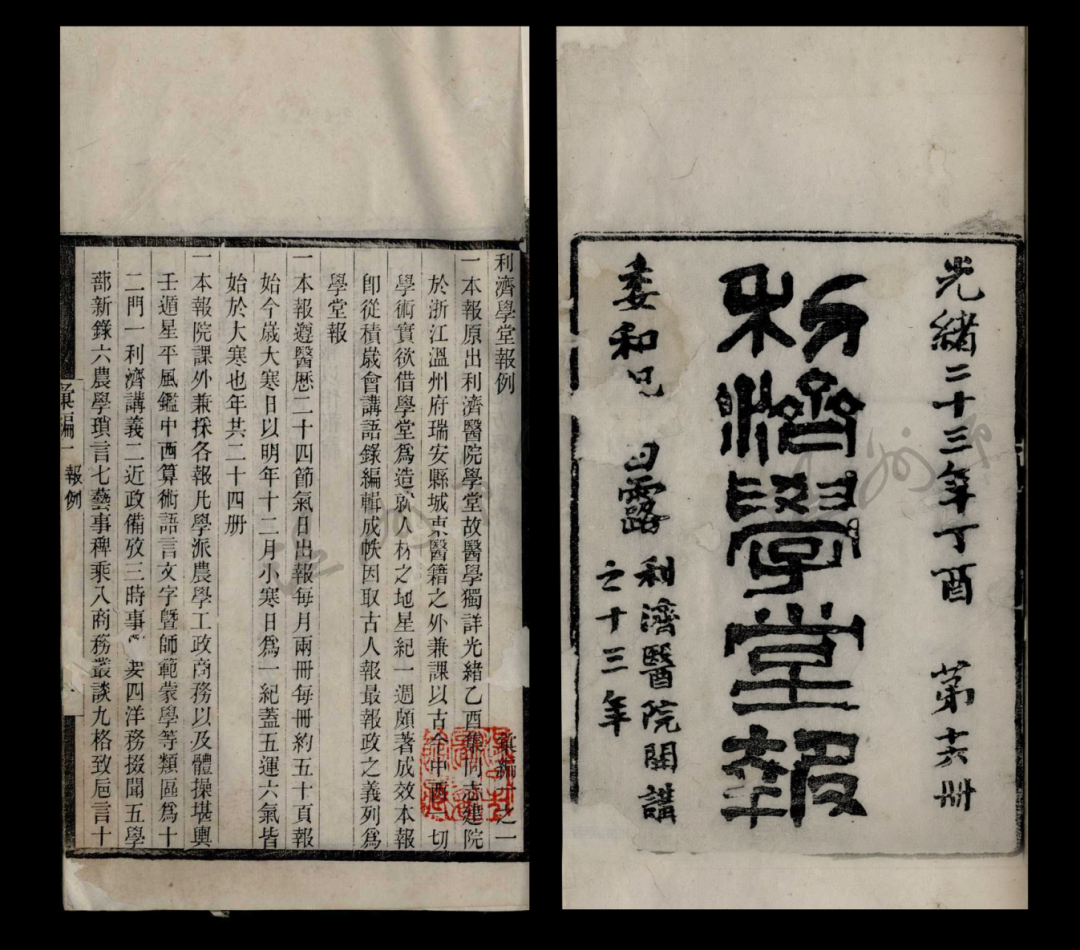 光緒二十三年丁酉 第十六冊
利濟學堂報
委和 白露 利濟醫院開講
之十三年
利濟學堂報例 彙編 之一
一本報原出利濟醫院學堂故醫學獨詳光緒乙酉集同志建院
於浙江溫州府瑞安縣城東醫籍之外兼課以古今中西一切
學術實欲借學堂爲造就人材之地星紀一週頗著成效本報
卽從積歲會講語錄編輯成帙因取古人報最報政之義列爲
學堂報
一本報遵醫歷二十四節氣日出報每月兩冊每冊約五十頁報
始今歲大寒日以明年十二月小寒日爲一紀蓋五運六氣皆
始於大寒也年共二十四册
一本報院課外兼採各報凡學派農學工政商務以及體操堪輿
壬遁星平風鑑中西算術語言文字曁師範蒙學等類區爲十
二門一利濟講義二近政備攷三時事 要四洋務掇聞五學
蔀新錄六農學瑣言七藝事稗乘八商務叢談九格致巵言十
彙編一 報例